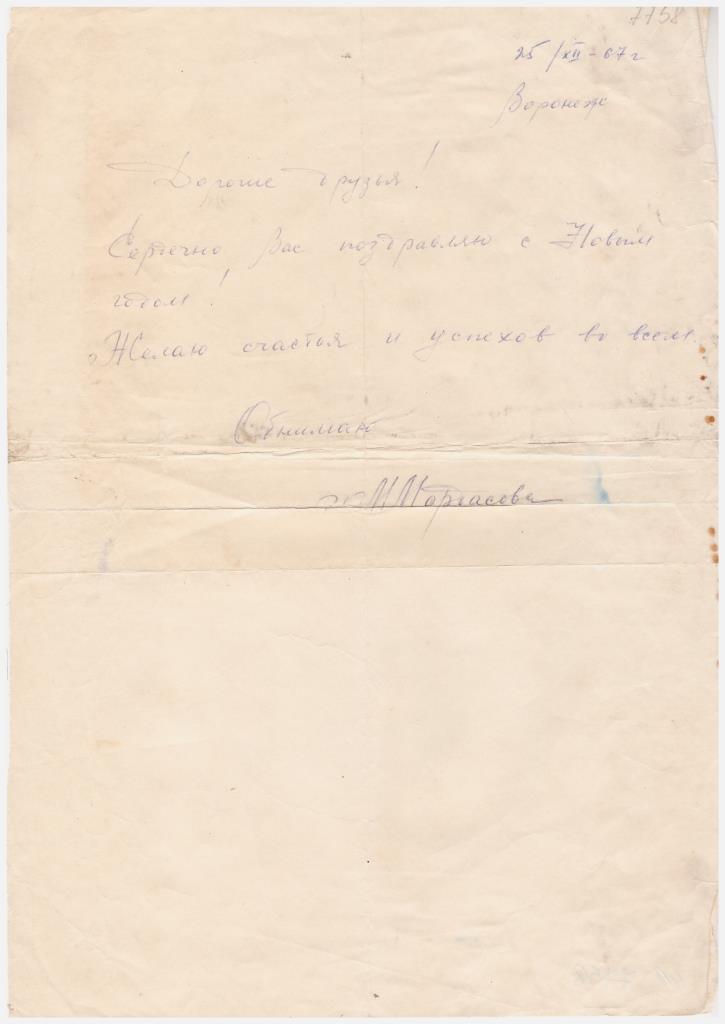 7758
25/XII-67 г
Воронеж
Дорогие друзья!
Сердечно Вас поздравляю с Новым
годом!
Желаю счастья и успехов во всем.
Обнимаю